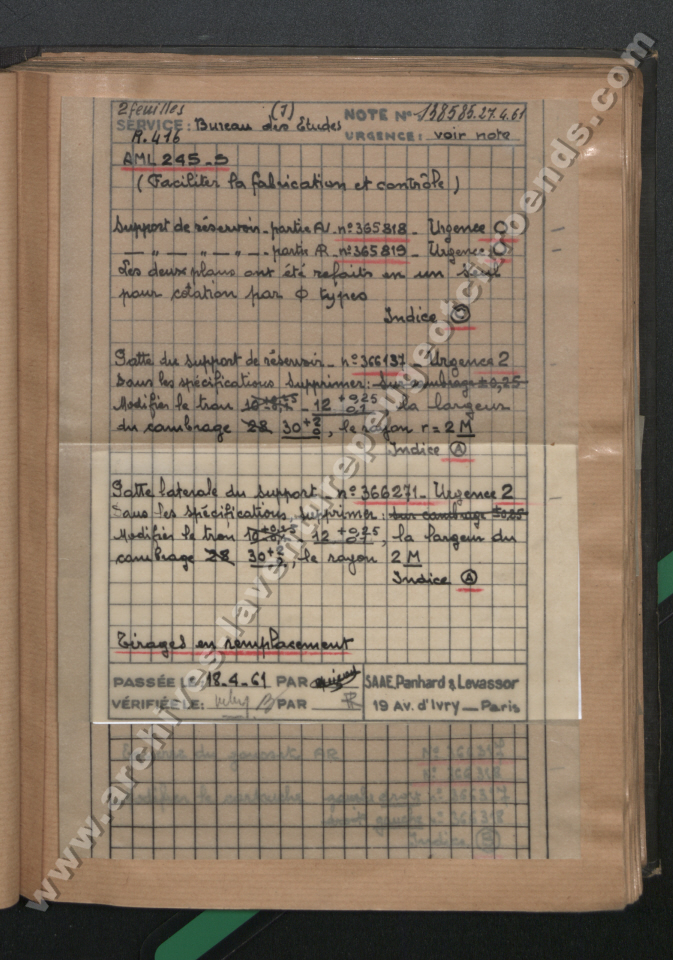 2 feuilles (1) NOTE N° 138585.27.4.61
SERVICE: Bureau des Etudes URGENCE: voir note
R.416
AML 245-S
(Faciliter la fabrication et contrôle)
Support de réservoir - partie AV - n° 365818 - Urgence 0
— " — " — " — partie AR - n° 365819 - Urgence 0
Les deux plans ont été refaits en un seul
pour cotation par Φ types
Indice C
Patte du support de réservoir - n° 366137 - Urgence 2
Dans les spécifications supprimer: sur cambrage ±0,25
Modifier le trou 12 +0,25, la largeur
du cambrage 28 30 +2 0, le rayon r = 2 M
Indice A
Patte laterale du support - n° 366271 - Urgence 2
Dans les spécifications, supprimer: sur cambrage ±0,25
Modifier le trou 12 +0,25, la largeur du
cambrage 28 30, le rayon 2 M
Indice A
Tirages en remplacement
PASSÉE LE: 18-4-61 PAR SAAE, Panhard & Levassor
VÉRIFIÉE LE: PAR 19 Av. d'Ivry — Paris
du gousset AR N°
N° 366318
gauche n° 366317
n° 366318
Indice
www.archives-laventurepeugeotcitroends.com